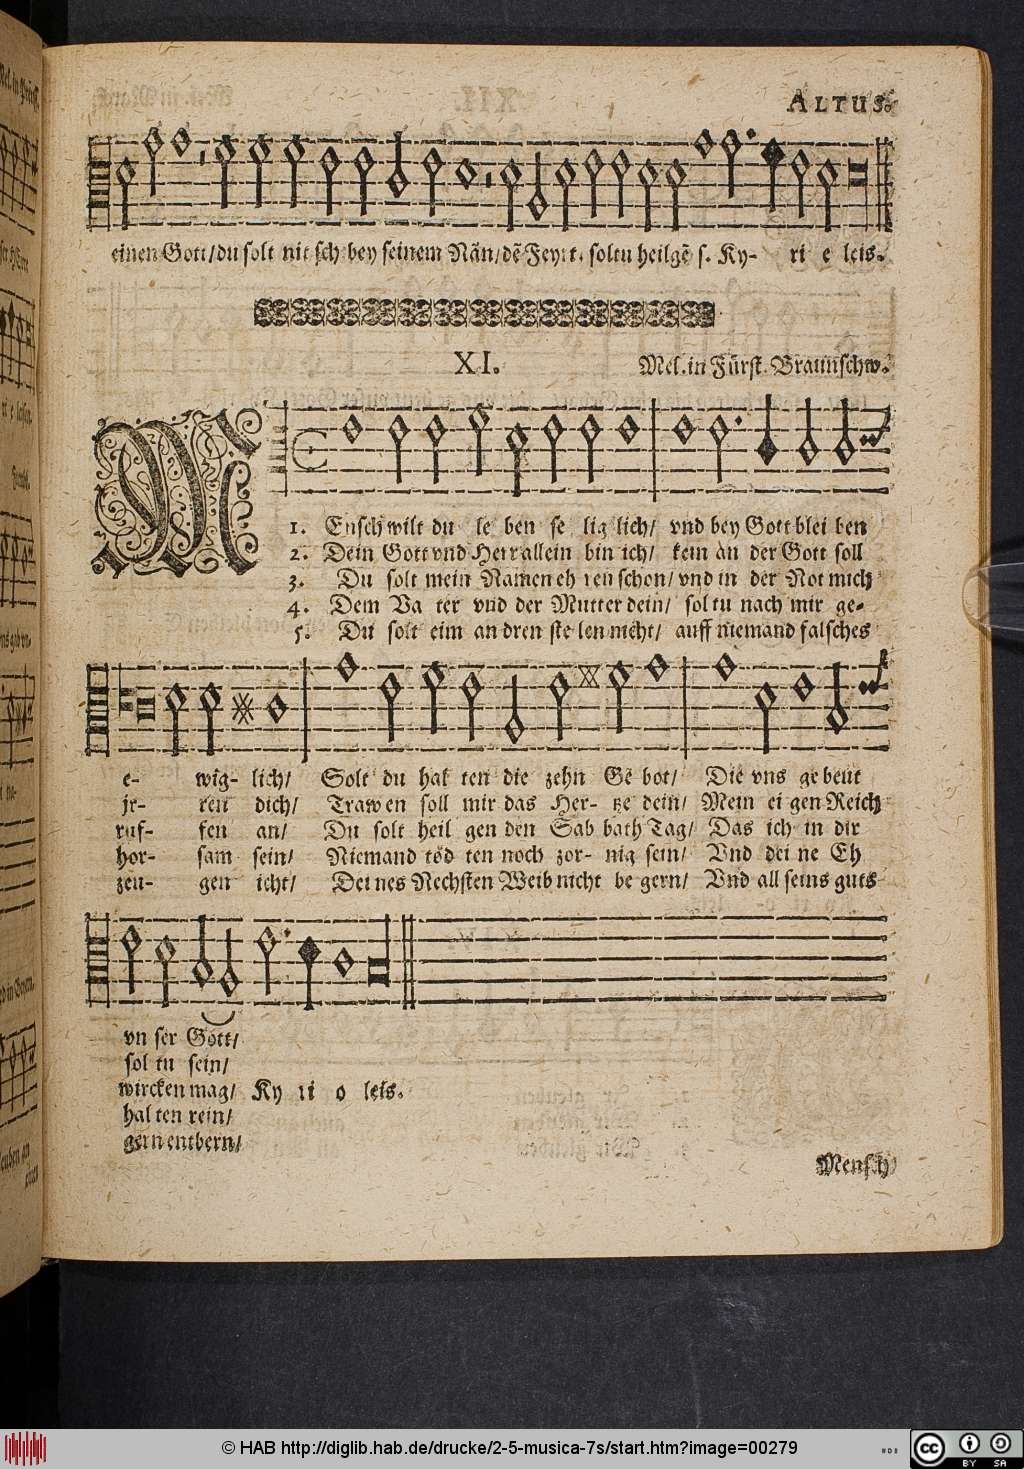 ALTUS.
einen Gott/du solt nit sch bey seinem Nãn/dẽ Feyrt. soltu heilgẽ s. Ky- ri e leis.
XI. Mel. in Fürst. Braunschw.
1. MEnsch wilt du le ben se lig lich/ vnd bey Gott blei ben
2. Dein Gott vnd Herr allein bin ich/ kein àn der Gott soll
3. Du solt mein Namen eh ren schon/ vnd in der Not mich
4. Dem Va ter vnd der Mutter dein/ sol tu nach mir ge-
5. Du solt eim an dren ste len nicht/ auff niemand falsches
e- wig- lich/ Solt du hal ten die zehn Ge bot/ Die vns ge beut
jr- ren dich/ Traw en soll mir das Her- tze dein/ Mein ei gen Reich
ruf- fen an/ Du solt heil gen den Sab bath Tag/ Das ich in dir
hor- sam sein/ Niemand töd ten noch zor- nig sein/ Vnd dei ne Eh
zeu- gen icht/ Dei nes Nechsten Weib nicht be gern/ Vnd all seins guts
vn ser Gott/
sol tu sein/
wircken mag/ Ky ri o leis.
hal ten rein/
gern entbern/
Mensch
© HAB http://diglib.hab.de/drucke/2-5-musica-7s/start.htm?image=00279
cc BY SA